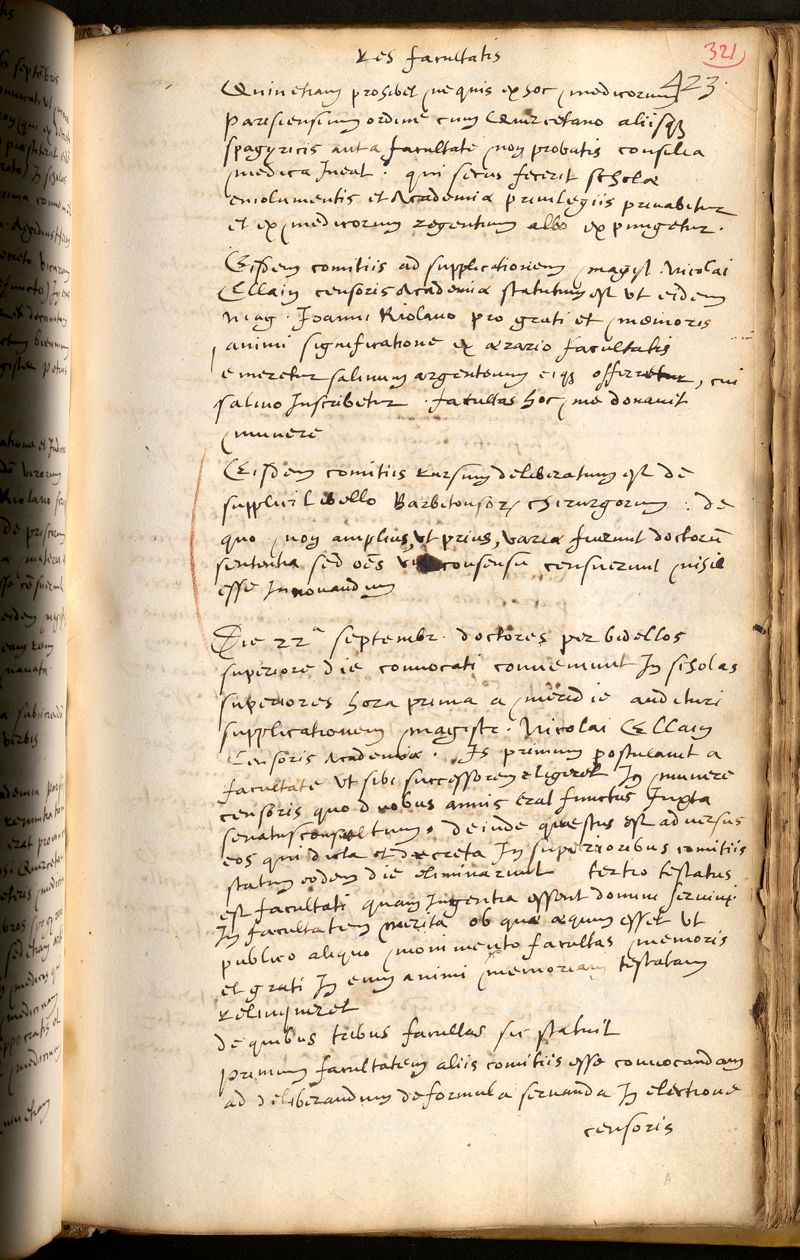 Res facultatis
321
423.
Quinetiam prohibet ne quis ex hoc medicorum
parisiensium ordine cum Quercetano aliisq3
spagyricis aut a facultate non probatis consilia
medica Ineat. qui secus fecerit scholæ
emolumentis et Academiæ privilegiis privabitur
et ex medicorum regentium albo expungetur.
Eisdem comitiis ad supplicationem magist. Nicolai
Ellain censoris Academiæ statutum est ut eidem
Mag. Joanni Riolano pro grati et memoris
animi significatione ex ærario facultatis
emeretur salinum argenteum eiq3 offerretur, cui
salino Inscribetur. facultas hoc me donavit
munere
Eisdem comitiis rursum deliberatum est de
supplici libello Barbitonsor chirurgorum: de
quo non amplius, ut prius, variæ fuerunt doctorū
sententiæ sed oēs consensu censuerunt nihil
esse Innovandum
Die 22ª septembr. doctores per bidellos
superiore die convocati convenerunt In scholas
superiores hora prima a meridie audituri
supplicationem magistr. Nicolai Ellain
Censoris Academiæ. Is primum postulavit a
facultate ut sibi successorem eligeret In munere
censoris quo duobus annis erat functus Iuxta
senatusconsultum. deinde quæstus est adversus
eos qui dicta et decreta In superioribus comitiis
statim eodem die eliminarunt tertio testatus
est facultati quam Ingentia essent domini
In facultatem merita ob quæ æquum esset ut
publico aliquo monimento facultas memoris
et grati In eum animi memoriam testatam
relinqueret
de quibus tribus facultas sic statuit
primum facultatem aliis comitiis esse convocandam
ad deliberandum de formula servanda In electione
censoris